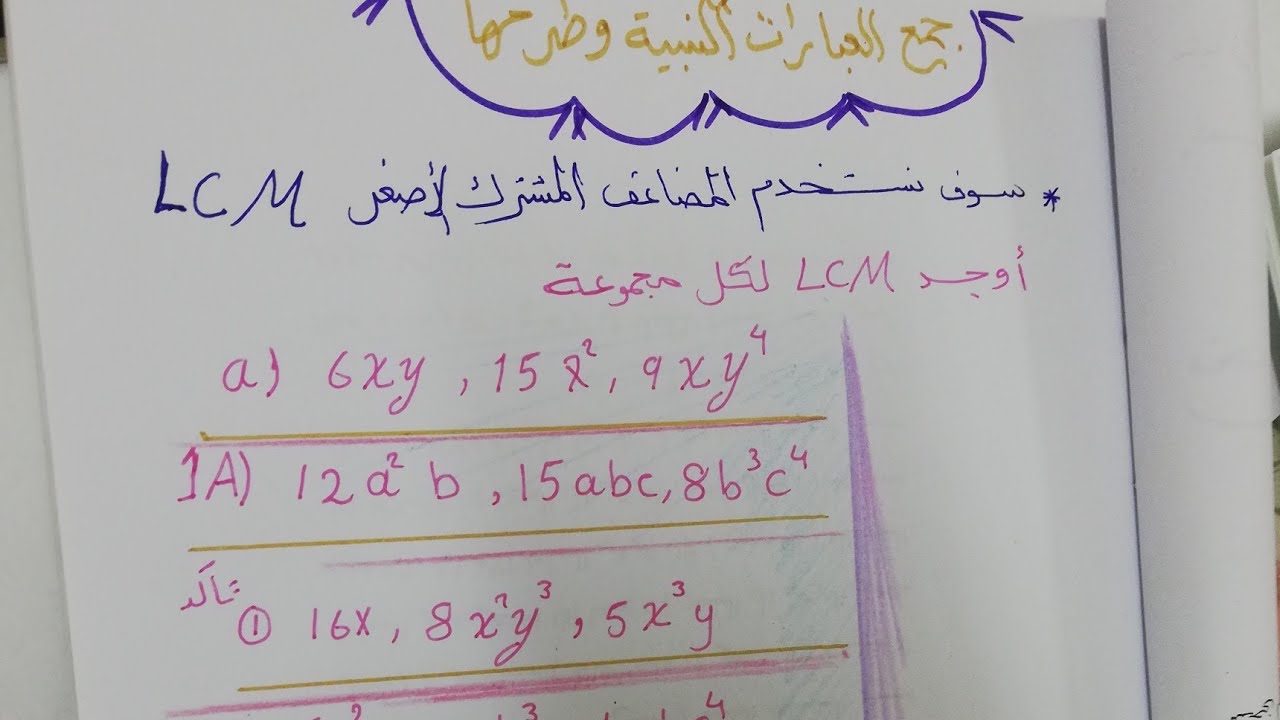 جمع العبارات النسبية وطرحها
* سوف نستخدم المضاعف المشترك الأصغر LCM
أوجد LCM لكل مجموعة
a) 6xy , 15x², 9xy⁴
1A) 12a²b , 15abc, 8b³c⁴
تأكد
① 16x, 8x²y³ , 5x³y